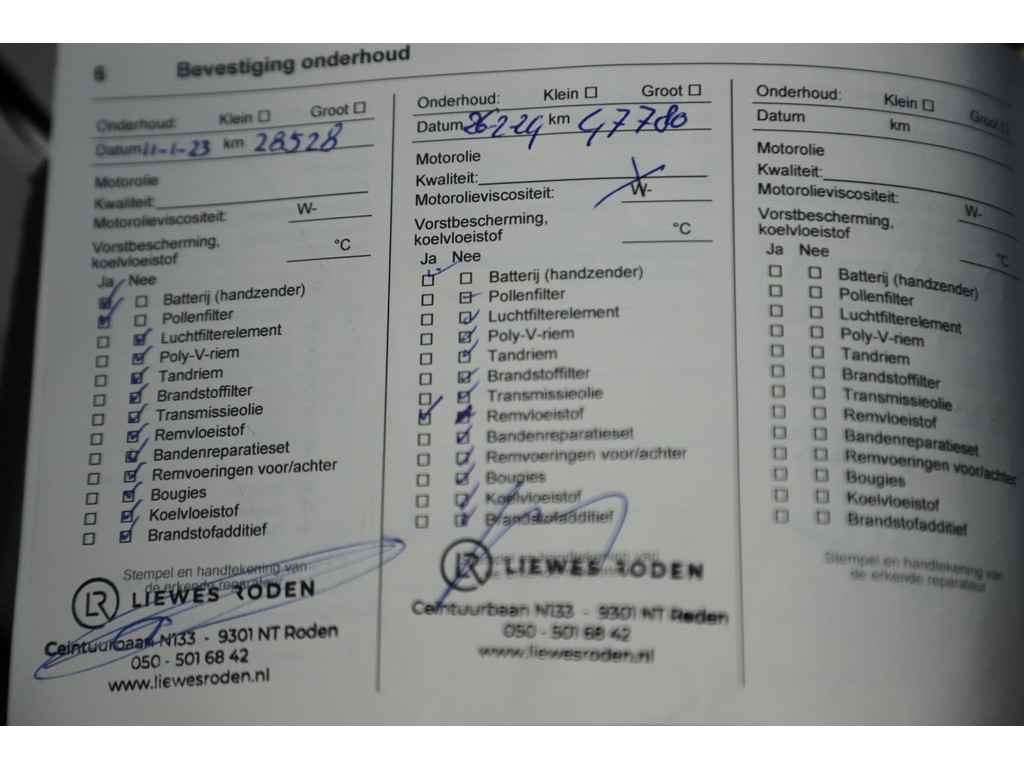 6 Bevestiging onderhoud
Onderhoud: Klein Groot
Datum 11-1-23 km 28528
Motorolie
Kwaliteit:
Motorolieviscositeit: W-
Vorstbescherming,
koelvloeistof °C
Ja Nee
Batterij (handzender)
Pollenfilter
Luchtfilterelement
Poly-V-riem
Tandriem
Brandstoffilter
Transmissieolie
Remvloeistof
Bandenreparatieset
Remvoeringen voor/achter
Bougies
Koelvloeistof
Brandstofadditief
Stempel en handtekening van
de erkende reparateur
LR LIEWES RODEN
Ceintuurbaan N133 - 9301 NT Roden
050 - 501 68 42
www.liewesroden.nl
Onderhoud: Klein Groot
Datum 26-2-24 km 47780
Motorolie
Kwaliteit:
Motorolieviscositeit: W-
Vorstbescherming,
koelvloeistof °C
Ja Nee
Batterij (handzender)
Pollenfilter
Luchtfilterelement
Poly-V-riem
Tandriem
Brandstoffilter
Transmissieolie
Remvloeistof
Bandenreparatieset
Remvoeringen voor/achter
Bougies
Koelvloeistof
Brandstofadditief
en handtekening van
LR LIEWES RODEN
Ceintuurbaan N133 - 9301 NT Roden
050 - 501 68 42
www.liewesroden.nl
Onderhoud: Klein Groot
Datum km
Motorolie
Kwaliteit:
Motorolieviscositeit: W-
Vorstbescherming,
koelvloeistof °C
Ja Nee
Batterij (handzender)
Pollenfilter
Luchtfilterelement
Poly-V-riem
Tandriem
Brandstoffilter
Transmissieolie
Remvloeistof
Bandenreparatieset
Remvoeringen voor/achter
Bougies
Koelvloeistof
Brandstofadditief
Stempel en handtekening van
de erkende reparateur